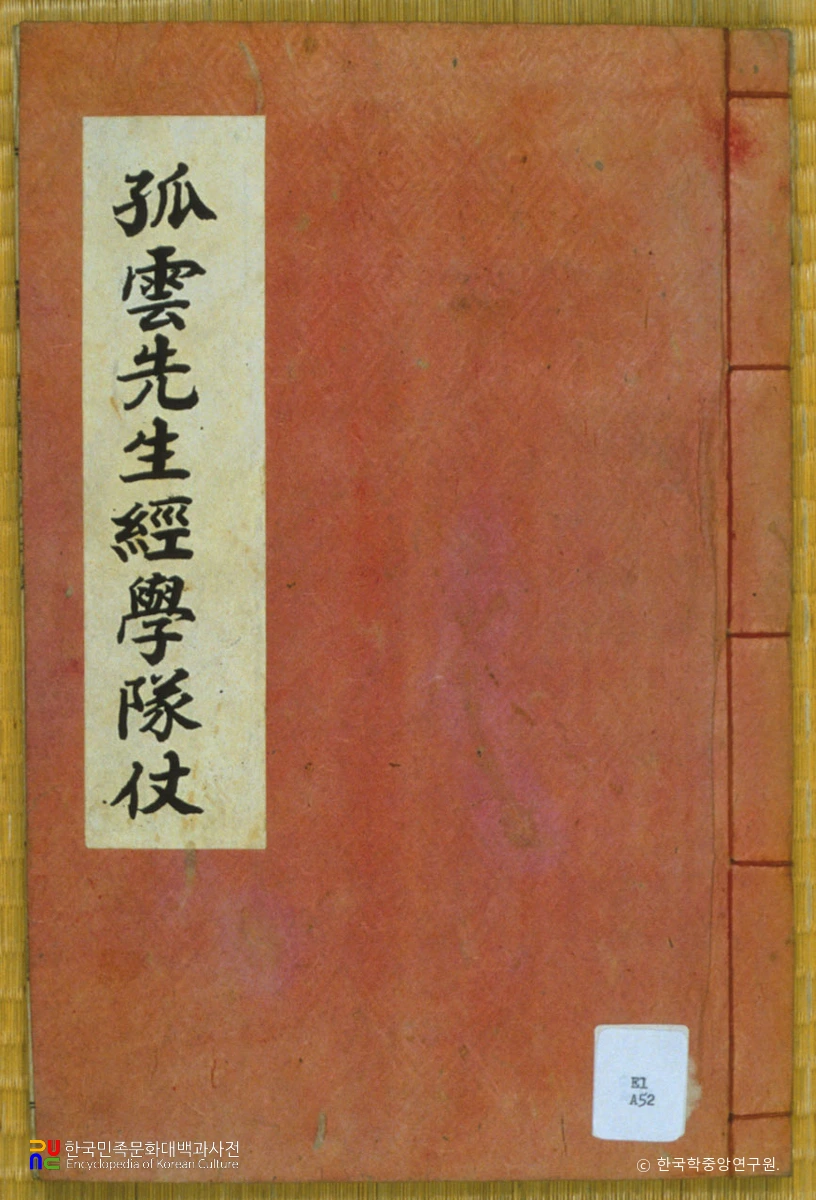 孤雲先生經學隊仗
E1
A52
한국민족문화대백과사전
Encyclopedia of Korean Culture
© 한국학중앙연구원.